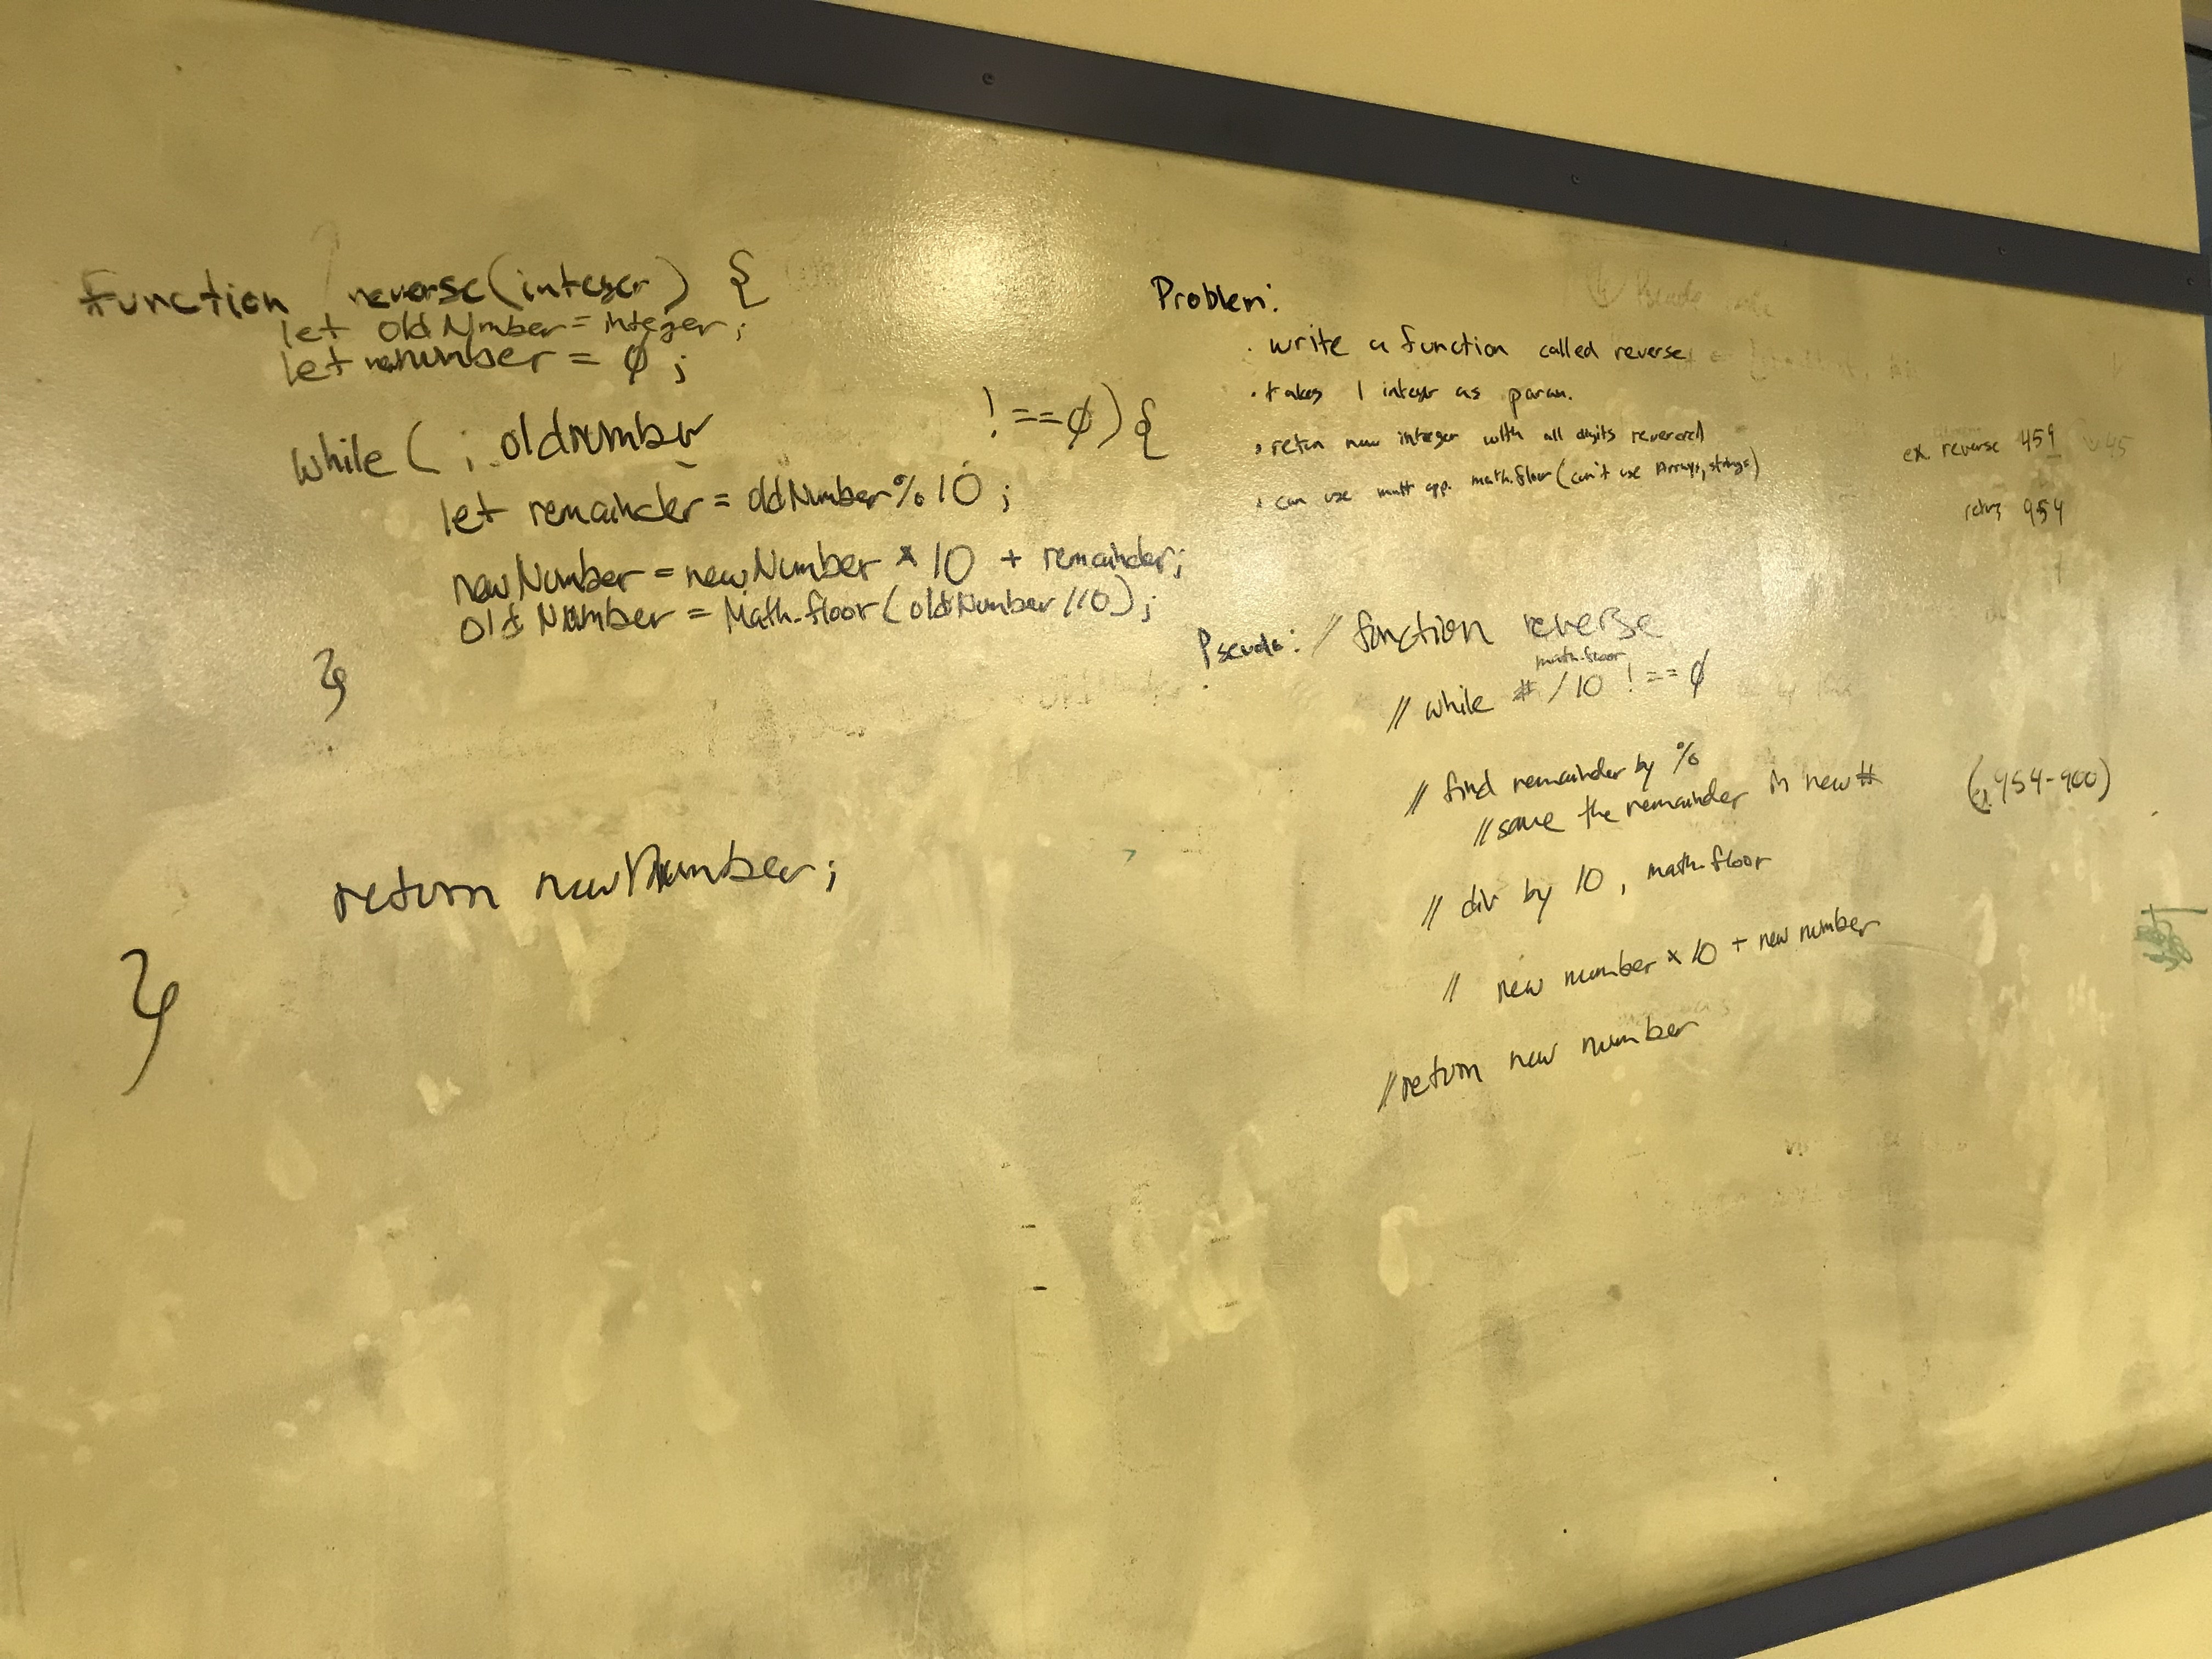 function reverse(integer) {
let oldNumber = integer;
let newnumber = 0;
while ( ; oldnumber !== 0) {
let remainder = oldNumber % 10;
newNumber = newNumber * 10 + remainder;
oldNumber = Math.floor(oldNumber / 10);
}
return newNumber;
}
Problem:
· write a function called reverse
· takes 1 integer as param.
· retun new integer with all digits reversed
· can use math opp. math.floor (can't use Arrays, strings)
ex. reverse 459
retun 954
Pseudo: // function reverse
math.floor
// while # / 10 !== 0
// find remainder by %
// save the remainder in new #
(954-900)
// div by 10, math.floor
// new number x 10 + new number
// return new number